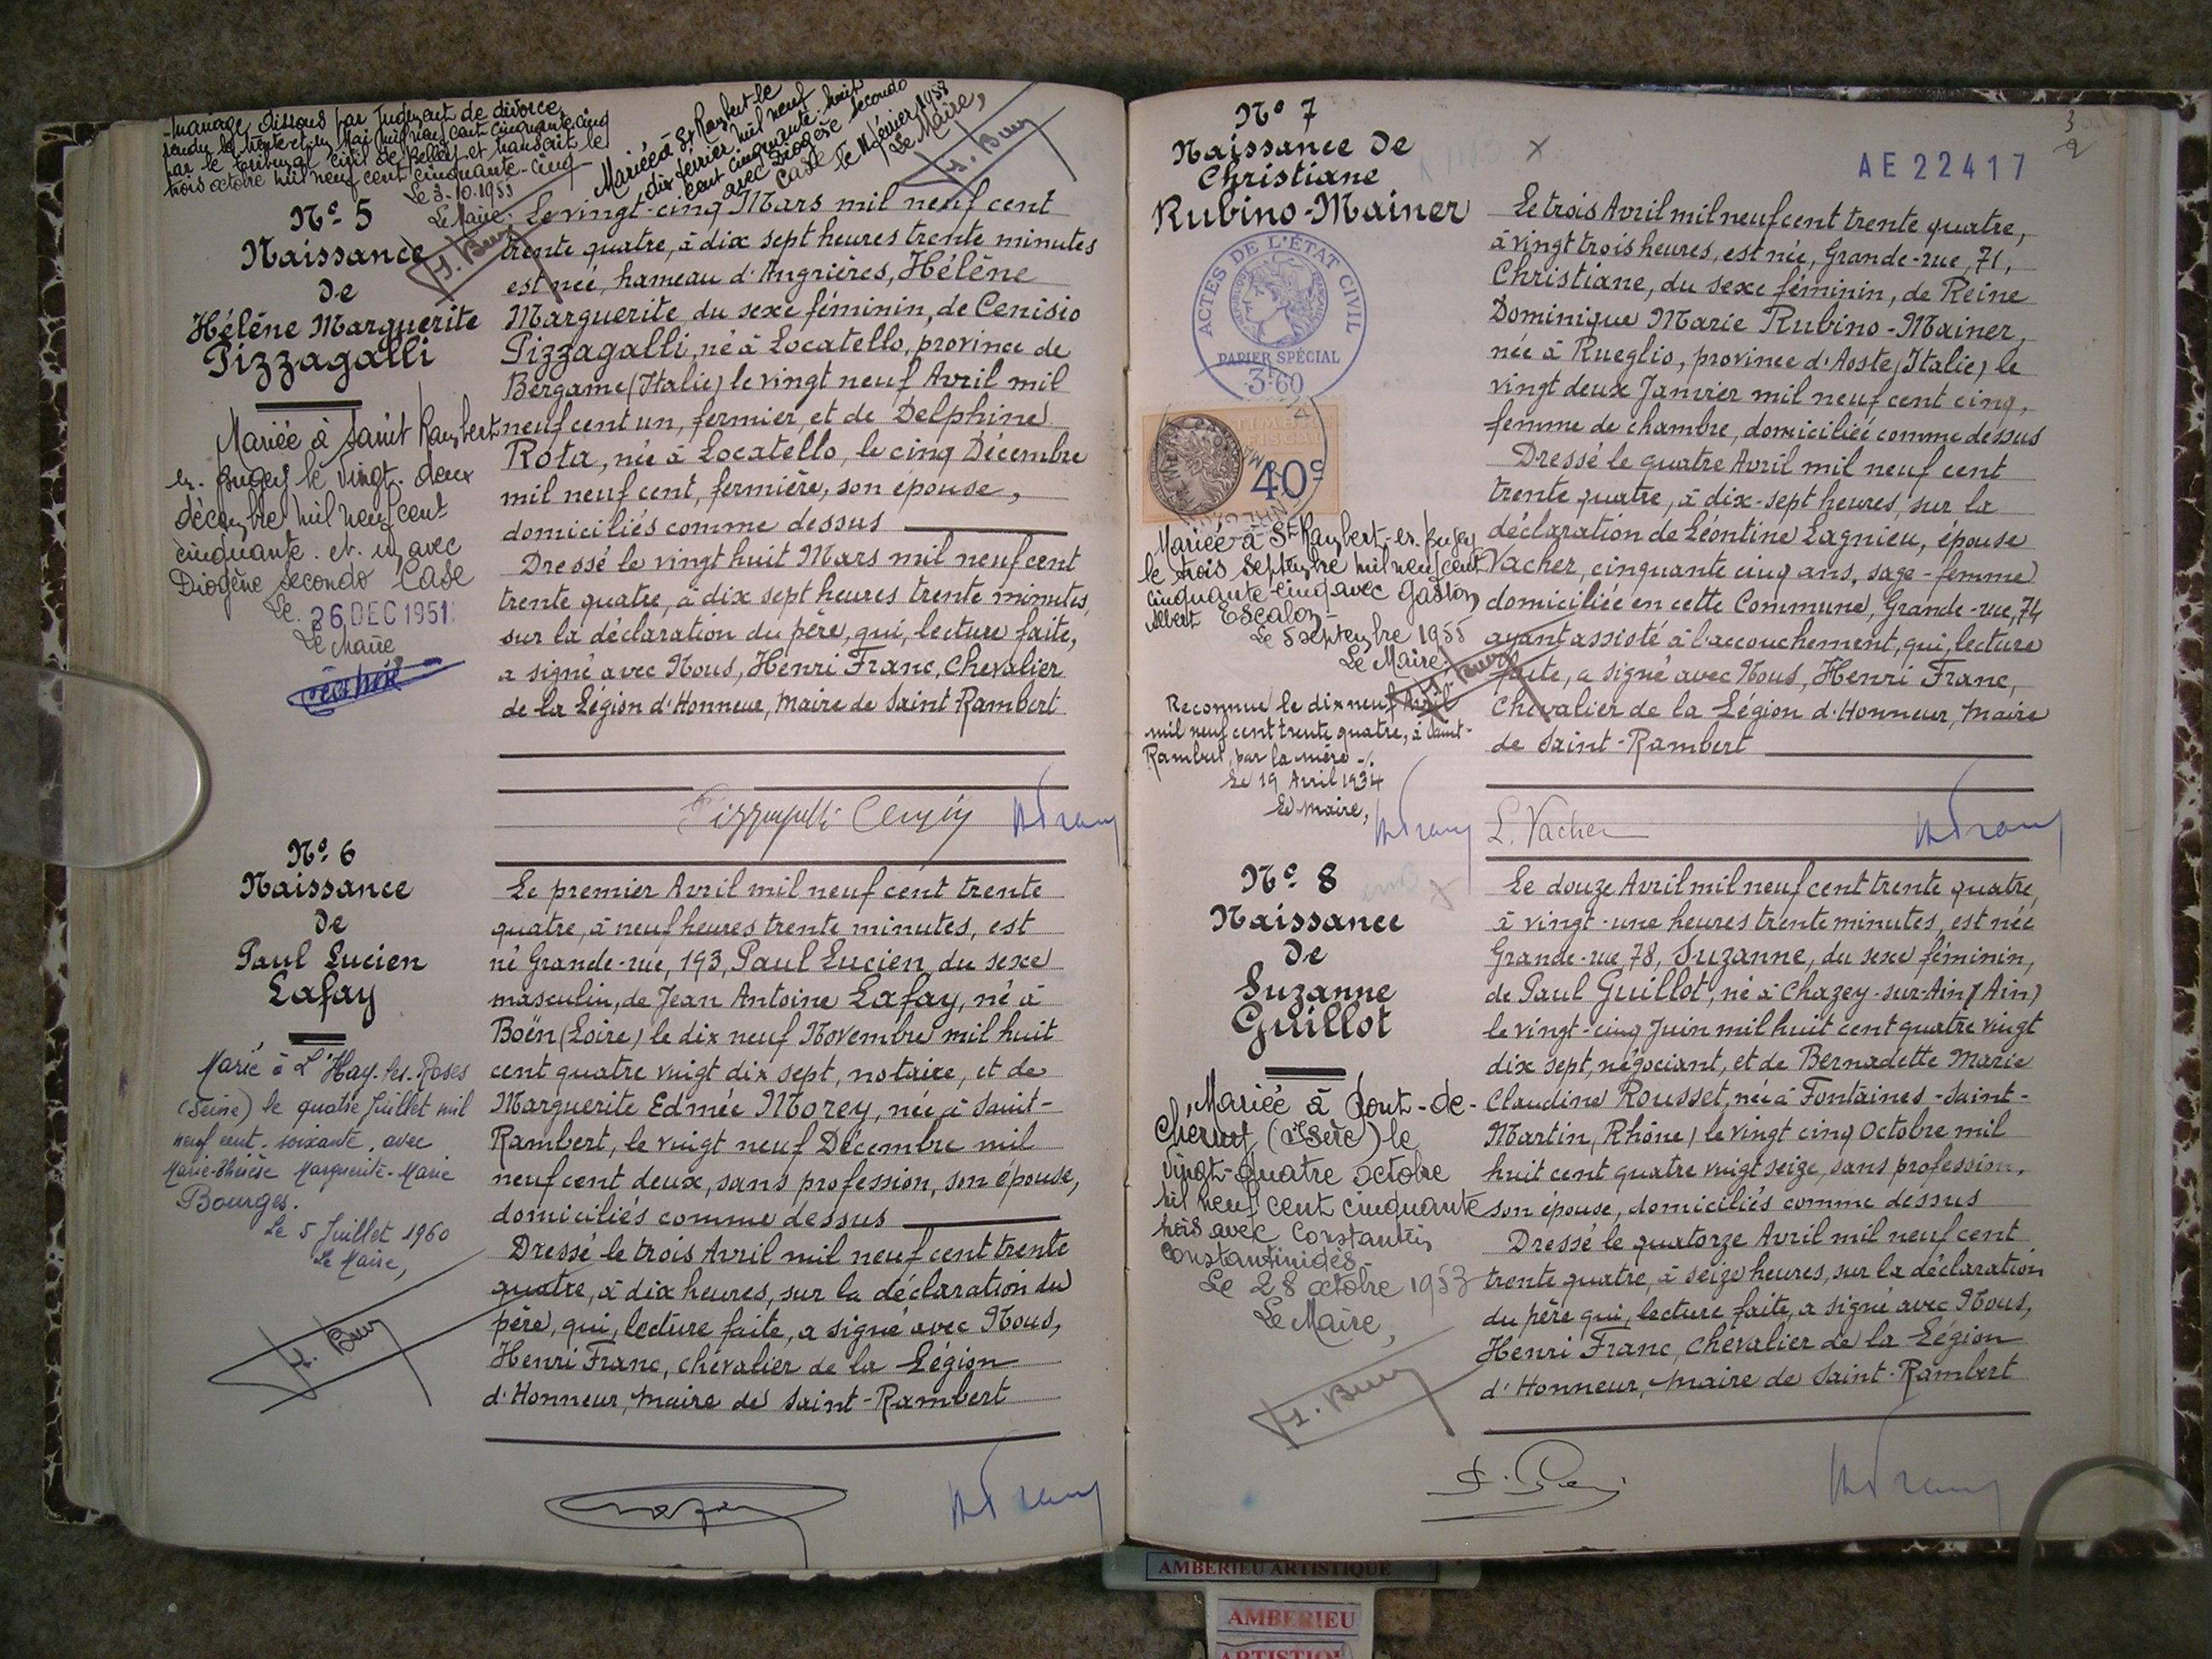 mariage dissous par Jugement de divorce
rendu le trente et un Mai mil neuf cent cinquante cinq
par le tribunal civil de Belley et transcrit le
trois octobre mil neuf cent cinquante-cinq
Le 3-10-1955
Le Maire.
Mariée à St Rambert le
dix février mil neuf
cent cinquante-huit
avec Diogène Secondo
Case le 11 février 1958
Le Maire,
N° 5
Naissance
de
Hélène Marguerite
Pizzagalli
Mariée à Saint Rambert
en Bugey le vingt-deux
décembre mil neuf cent
cinquante et un avec
Diogène secondo Case
Le 26 DEC 1951
Le Maire
Le vingt-cinq Mars mil neuf cent
trente quatre, à dix sept heures trente minutes
est née, hameau d'Angrières, Hélène
Marguerite du sexe féminin, de Cenisio
Pizzagalli, né à Locatello, province de
Bergame (Italie) le vingt neuf Avril mil
neuf cent un, fermier, et de Delphine
Rota, née à Locatello, le cinq Décembre
mil neuf cent, fermière, son épouse,
domiciliés comme dessus
Dressé le vingt huit Mars mil neuf cent
trente quatre, à dix sept heures trente minutes,
sur la déclaration du père, qui, lecture faite,
a signé avec Nous, Henri Franc, Chevalier
de la Légion d'Honneur, Maire de Saint Rambert
N° 6
Naissance
de
Paul Lucien
Lafay
Marié à L'Hay-les-Roses
(Seine) le quatre Juillet mil
neuf cent soixante, avec
Marie-Thérèse Marguerite-Marie
Bourges.
Le 5 Juillet 1960
Le Maire,
Le premier Avril mil neuf cent trente
quatre, à neuf heures trente minutes, est
né Grande-rue, 193, Paul Lucien, du sexe
masculin, de Jean Antoine Lafay, né à
Boën (Loire) le dix neuf Novembre mil huit
cent quatre vingt dix sept, notaire, et de
Marguerite Edmée Morey, née à Saint-
Rambert, le vingt neuf Décembre mil
neuf cent deux, sans profession, son épouse,
domiciliés comme dessus
Dressé le trois Avril mil neuf cent trente
quatre, à dix heures, sur la déclaration du
père, qui, lecture faite, a signé avec Nous,
Henri Franc, chevalier de la Légion
d'Honneur, Maire de Saint-Rambert
Lafay
N° 7
Naissance de
Christiane
Rubino-Mainer
ACTES DE L'ÉTAT CIVIL
PAPIER SPÉCIAL
3f60
TIMBRE
FISCAL
40c
Mariée à St Rambert-en-Bugey
le trois Septembre mil neuf cent
cinquante cinq avec Gaston
Albert Escalon-
Le 5 Septembre 1955
Le Maire,
Reconnue le dix neuf Avril
mil neuf cent trente quatre, à Saint-
Rambert, par la mère-/.
Le 19 Avril 1934
Le Maire,
3
2
AE 22417
Le trois Avril mil neuf cent trente quatre,
à vingt trois heures, est née, Grande-rue, 71,
Christiane, du sexe féminin, de Reine
Dominique Marie Rubino-Mainer,
née à Rueglio, province d'Aoste (Italie) le
vingt deux Janvier mil neuf cent cinq,
femme de chambre, domiciliée comme dessus
Dressé le quatre Avril mil neuf cent
trente quatre, à dix-sept heures, sur la
déclaration de Léontine Lagnieu, épouse
Vacher, cinquante cinq ans, sage-femme
domiciliée en cette Commune, Grande-rue, 74
ayant assisté à l'accouchement, qui, lecture
faite, a signé avec Nous, Henri Franc,
Chevalier de la Légion d'Honneur, Maire
de Saint-Rambert
L. Vacher
N° 8
Naissance
de
Suzanne
Guillot
Mariée à Pont-de-
Cheruy (Isère) le
vingt-quatre octobre
mil neuf cent cinquante
trois avec Constantin
Constantinidès.
Le 28 octobre 1953
Le Maire,
Le douze Avril mil neuf cent trente quatre,
à vingt-une heures trente minutes, est née
Grande-rue, 78, Suzanne, du sexe féminin,
de Paul Guillot, né à Chazey-sur-Ain (Ain)
le vingt-cinq Juin mil huit cent quatre vingt
dix sept, négociant, et de Bernadette Marie
Claudine Rousset, née à Fontaines-Saint-
Martin, Rhône) le vingt cinq Octobre mil
huit cent quatre vingt seize, sans profession,
son épouse, domiciliés comme dessus
Dressé le quatorze Avril mil neuf cent
trente quatre, à seize heures, sur la déclaration
du père qui, lecture faite, a signé avec Nous,
Henri Franc, chevalier de la Légion
d'Honneur, Maire de Saint-Rambert
AMBERIEU ARTISTIQUE
AMBERIEU
ARTISTIQUE